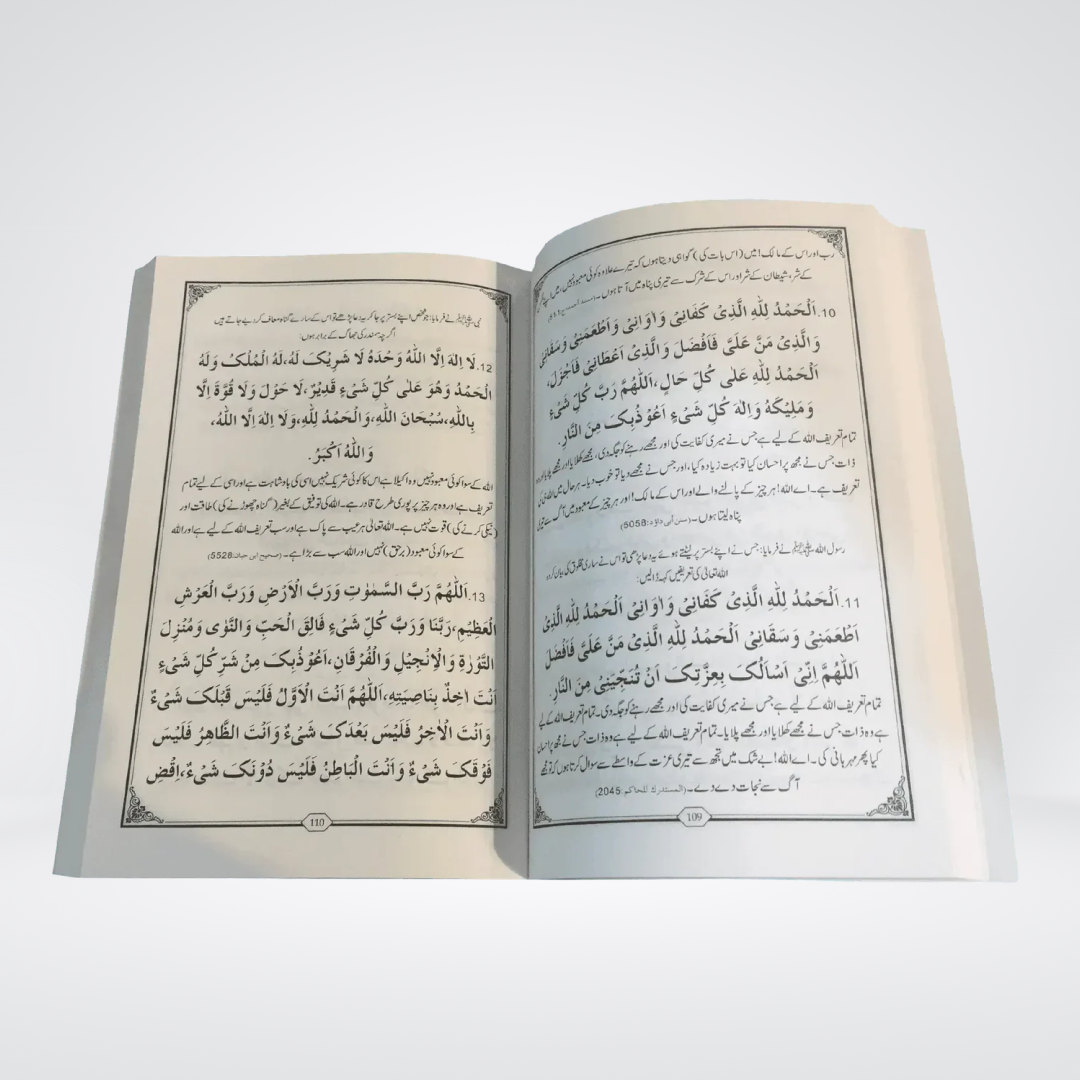 رب اور اس کے مالک! میں (اس بات کی) گواہی دیتا ہوں کہ تیرے علاوہ کوئی معبود نہیں، میں اپنے نفس
کے شر، شیطان کے شر اور اس کے شرک سے تیری پناہ میں آتا ہوں۔
10. اَلْحَمْدُ لِلّٰهِ الَّذِیْ كَفَانِیْ وَاٰوَانِیْ وَاَطْعَمَنِیْ وَسَقَانِیْ
وَالَّذِیْ مَنَّ عَلَیَّ فَاَفْضَلَ وَالَّذِیْ اَعْطَانِیْ فَاَجْزَلَ،
اَلْحَمْدُ لِلّٰهِ عَلٰی كُلِّ حَالٍ، اَللّٰهُمَّ رَبَّ كُلِّ شَیْءٍ
وَمَلِيْكَهُ وَاِلٰهَ كُلِّ شَیْءٍ اَعُوْذُبِكَ مِنَ النَّارِ.
تمام تعریف اللہ کے لیے ہے جس نے میری کفایت کی اور مجھے رہنے کو جگہ دی، مجھے کھلایا اور مجھے پلایا اور وہ
ذات جس نے مجھ پر احسان کیا تو بہت زیادہ کیا، اور جس نے مجھے دیا تو خوب دیا۔ ہر حال میں اللہ ہی کی
تعریف ہے۔ اے اللہ! ہر چیز کے پالنے والے اور اس کے مالک! اور ہر چیز کے معبود میں آگ سے تیری
پناہ لیتا ہوں۔ (سنن أبی داؤد: 5058)
رسول اللہ ﷺ نے فرمایا: جس نے اپنے بستر پر لیٹتے ہوئے یہ دعا پڑھی تو اس نے ساری مخلوق کی بیان کردہ
اللہ تعالیٰ کی تعریفیں کہہ ڈالیں:
11. اَلْحَمْدُ لِلّٰهِ الَّذِیْ كَفَانِیْ وَاٰوَانِیْ اَلْحَمْدُ لِلّٰهِ الَّذِیْ
اَطْعَمَنِیْ وَسَقَانِیْ اَلْحَمْدُ لِلّٰهِ الَّذِیْ مَنَّ عَلَیَّ فَاَفْضَلَ
اَللّٰهُمَّ اِنِّیْ اَسْاَلُكَ بِعِزَّتِكَ اَنْ تُنَجِّيَنِیْ مِنَ النَّارِ.
تمام تعریف اللہ کے لیے ہے جس نے میری کفایت کی اور مجھے رہنے کو جگہ دی۔ تمام تعریف اللہ کے لیے
ہے وہ ذات جس نے مجھے کھلایا اور مجھے پلایا۔ تمام تعریف اللہ کے لیے ہے وہ ذات جس نے مجھ پر احسان
کیا پھر مہربانی کی۔ اے اللہ! بے شک میں تجھ سے تیری عزت کے واسطے سے سوال کرتا ہوں کہ تو مجھے
آگ سے نجات دے دے۔ (المستدرك للحاكم: 2045)
109
نبی ﷺ نے فرمایا: جو شخص اپنے بستر پر جا کر یہ دعا پڑھے تو اس کے سارے گناہ معاف کر دیے جاتے ہیں
اگرچہ سمندر کی جھاگ کے برابر ہوں:
12. لَا اِلٰهَ اِلَّا اللّٰهُ وَحْدَهُ لَا شَرِيْكَ لَهُ، لَهُ الْمُلْكُ وَلَهُ
الْحَمْدُ وَهُوَ عَلٰی كُلِّ شَیْءٍ قَدِيْرٌ، لَا حَوْلَ وَلَا قُوَّةَ اِلَّا
بِاللّٰهِ، سُبْحَانَ اللّٰهِ، وَالْحَمْدُ لِلّٰهِ، وَلَا اِلٰهَ اِلَّا اللّٰهُ،
وَاللّٰهُ اَكْبَرُ.
اللہ کے سوا کوئی معبود نہیں وہ اکیلا ہے اس کا کوئی شریک نہیں اسی کی بادشاہت ہے اور اسی کے لیے تمام
تعریف ہے اور وہ ہر چیز پر پوری طرح قادر ہے۔ اللہ کی توفیق کے بغیر (گناہ چھوڑنے کی) طاقت اور
(نیکی کرنے کی) قوت نہیں ہے۔ اللہ تعالیٰ ہر عیب سے پاک ہے اور سب تعریف اللہ کے لیے ہے اور اللہ
کے سوا کوئی معبود (برحق) نہیں اور اللہ سب سے بڑا ہے۔ (صحیح ابن حبان: 5528)
13. اَللّٰهُمَّ رَبَّ السَّمٰوٰتِ وَرَبَّ الْاَرْضِ وَرَبَّ الْعَرْشِ
الْعَظِيْمِ، رَبَّنَا وَرَبَّ كُلِّ شَیْءٍ فَالِقَ الْحَبِّ وَالنَّوٰی وَمُنْزِلَ
التَّوْرٰةِ وَالْاِنْجِيْلِ وَالْفُرْقَانِ، اَعُوْذُبِكَ مِنْ شَرِّ كُلِّ شَیْءٍ
اَنْتَ اٰخِذٌ بِنَاصِيَتِهِ، اَللّٰهُمَّ اَنْتَ الْاَوَّلُ فَلَيْسَ قَبْلَكَ شَیْءٌ
وَاَنْتَ الْاٰخِرُ فَلَيْسَ بَعْدَكَ شَیْءٌ وَاَنْتَ الظَّاهِرُ فَلَيْسَ
فَوْقَكَ شَیْءٌ وَاَنْتَ الْبَاطِنُ فَلَيْسَ دُوْنَكَ شَیْءٌ، اِقْضِ
110